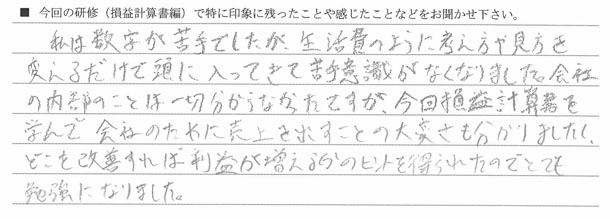 ■ 今回の研修（損益計算書編）で特に印象に残ったことや感じたことなどをお聞かせ下さい。
私は数字が苦手でしたが、生活費のように考え方や見方を
変えるだけで頭に入ってきて苦手意識がなくなりました。会社
の内部のことは一切分からなかったですが、今回損益計算書を
学んで会社のために売上を出すことの大変さも分かりましたし、
どこを改善すれば利益が増えるかのヒントを得られたのでとても
勉強になりました。